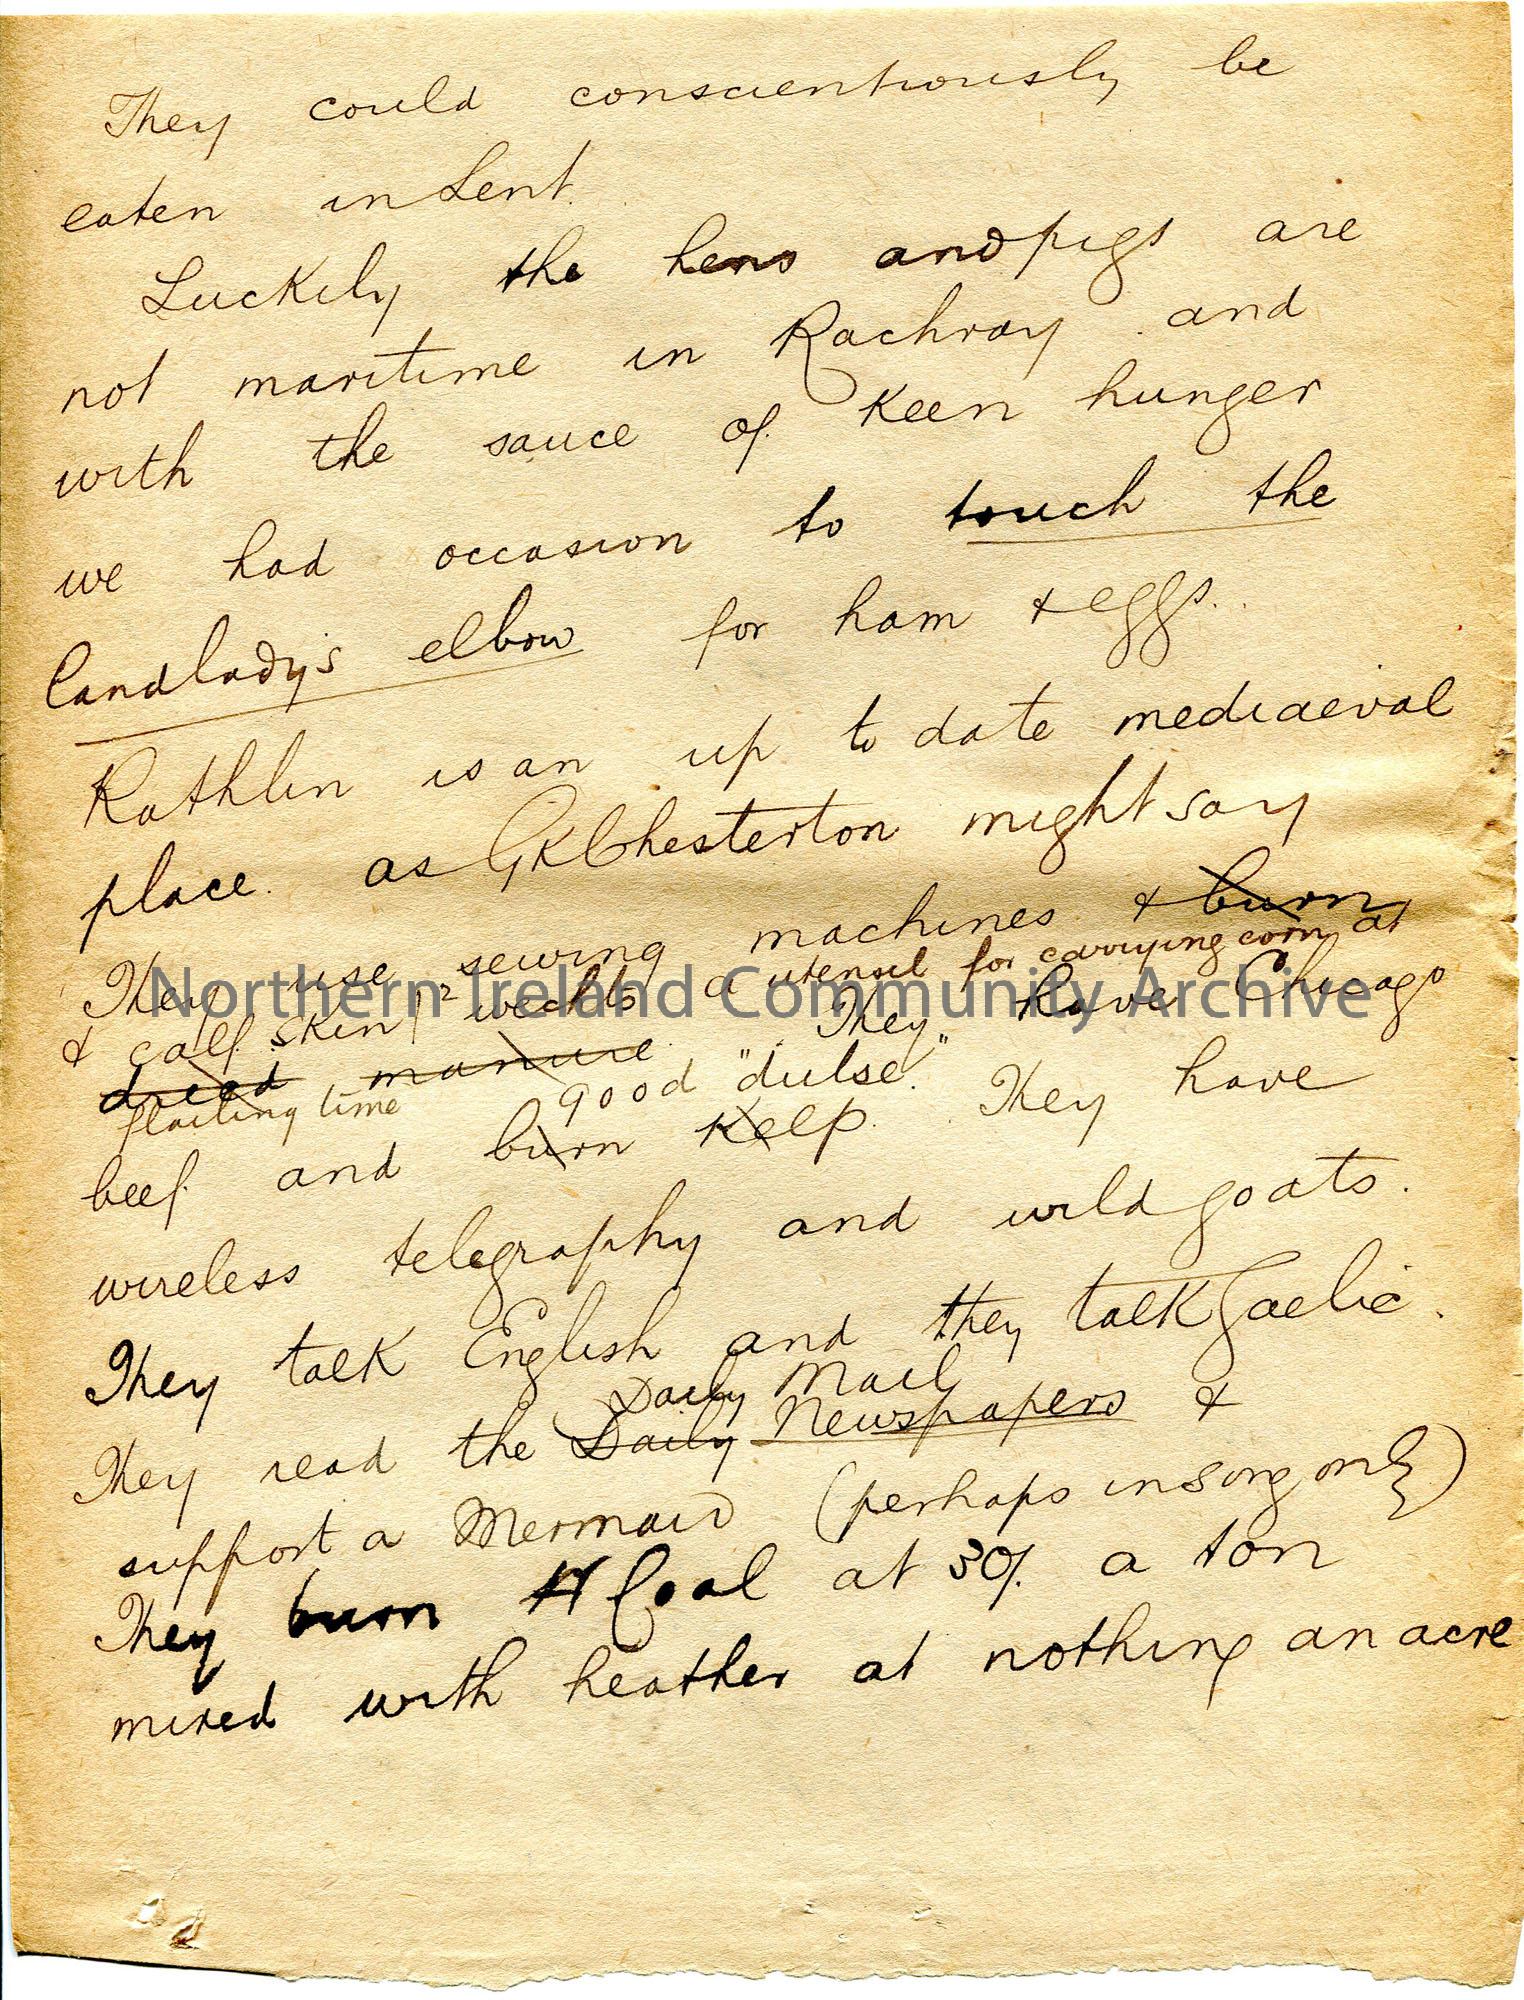 They could conscientiously be
eaten in Lent.
Luckily the hens and pigs are
not maritime in Rachray and
with the sauce of keen hunger
we had occasion to touch the
landlady's elbow for ham & eggs.
Rathlin is an up to date mediaeval
place. as GK Chesterton might say
They use sewing machines & burn
& calf skin wechts a utensil for carrying corn at
dried manure. They have Chicago
flailing time good "dulse".
beef and burn kelp. They have
wireless telegraphy and wild goats.
They talk English and they talk Gaelic.
Daily Mail
They read the Daily Newspapers &
support a Mermaid (perhaps in song only)
They burn Coal at 30/. a ton
mixed with heather at nothing an acre
Northern Ireland Community Archive